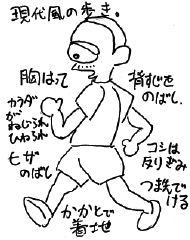 現代風の歩き.
胸はって
背すじを
のばし.
カラダ
が
ねじられ
ひねられ
コシは
反りぎみ
ヒザ
のばし
つま先で
ける
かかとで
着地